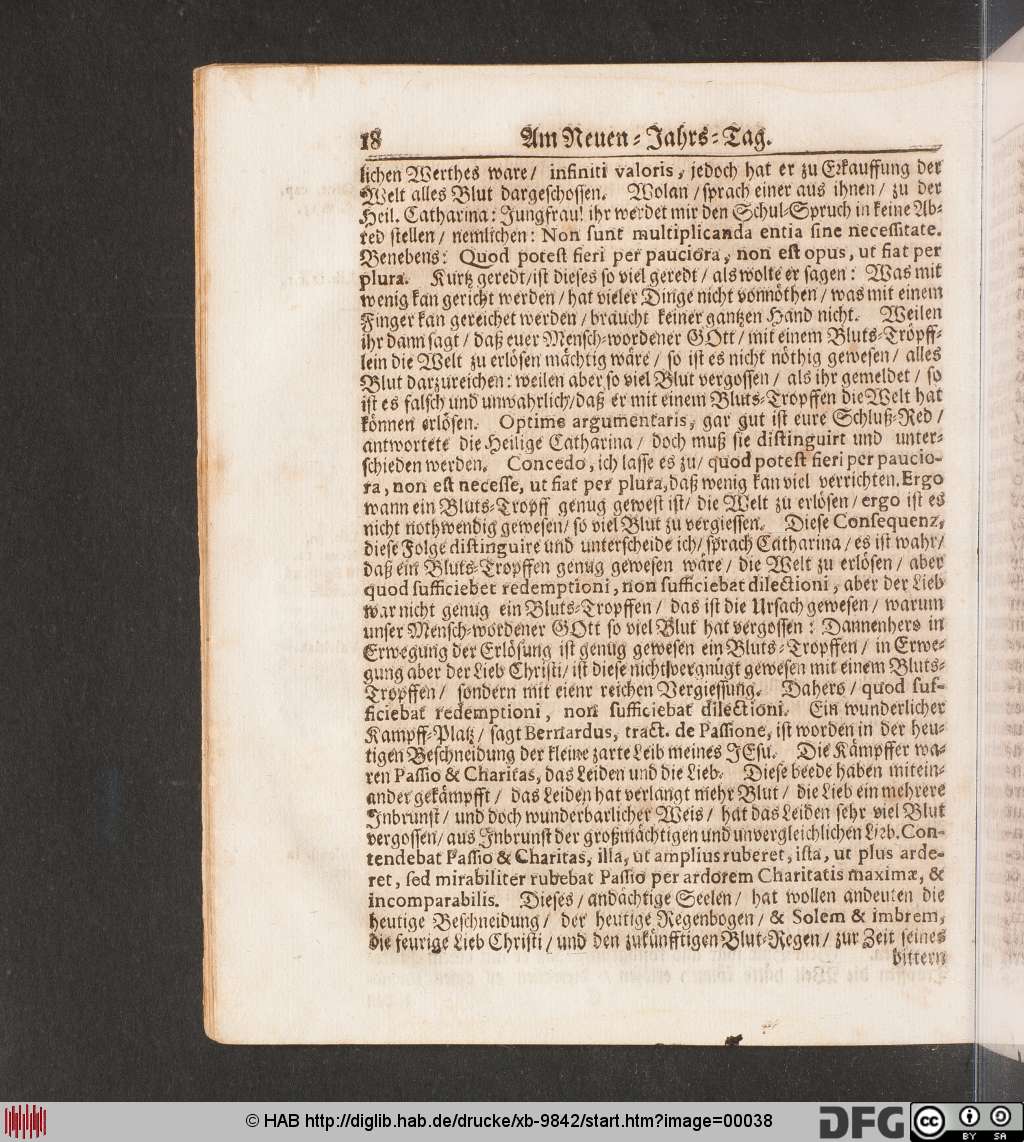 18 Am Neuen-Jahrs-Tag.
lichen Werthes ware/ infiniti valoris, jedoch hat er zu Erkauffung der
Welt alles Blut dargeschossen. Wolan/ sprach einer aus ihnen/ zu der
Heil. Catharina: Jungfrau! ihr werdet mir den Schul-Spruch in keine Ab-
red stellen/ nemlichen: Non sunt multiplicanda entia sine necessitate.
Benebens: Quod potest fieri per pauciora, non est opus, ut fiat per
plura. Kurtz geredt/ ist dieses so viel geredt/ als wolte er sagen: Was mit
wenig kan gericht werden/ hat vieler Dinge nicht vonnöthen/ was mit einem
Finger kan gereichet werden/ braucht keiner gantzen Hand nicht. Weilen
ihr dann sagt/ daß euer Mensch-wordener GOtt/ mit einem Bluts-Tröpff-
lein die Welt zu erlösen mächtig wäre/ so ist es nicht nöthig gewesen/ alles
Blut darzureichen: weilen aber so viel Blut vergossen/ als ihr gemeldet/ so
ist es falsch und unwahrlich/ daß er mit einem Bluts-Tropffen die Welt hat
können erlösen. Optime argumentaris, gar gut ist eure Schluß-Red/
antwortete die Heilige Catharina/ doch muß sie distinguirt und unter-
schieden werden. Concedo, ich lasse es zu/ quod potest fieri per paucio-
ra, non est necesse, ut fiat per plura, daß wenig kan viel verrichten. Ergo
wann ein Bluts-Tropff genug gewest ist/ die Welt zu erlösen/ ergo ist es
nicht nothwendig gewesen/ so viel Blut zu vergiessen. Diese Consequenz,
diese Folge distinguire und unterscheide ich/ sprach Catharina/ es ist wahr/
daß ein Bluts-Tropffen genug gewesen wäre/ die Welt zu erlösen/ aber
quod sufficiebet redemptioni, non sufficiebat dilectioni, aber der Lieb
war nicht genug ein Bluts-Tropffen/ das ist die Ursach gewesen/ warum
unser Mensch-wordener GOtt so viel Blut hat vergossen: Dannenhero in
Erwegung der Erlösung ist genug gewesen ein Bluts-Tropffen/ in Erwe-
gung aber der Lieb Christi/ ist diese nicht vergnügt gewesen mit einem Bluts-
Tropffen/ sondern mit eienr reichen Vergiessung. Dahero/ quod suf-
ficiebat redemptioni, non sufficiebat dilectioni. Ein wunderlicher
Kampff-Platz/ sagt Bernardus, tract. de Passione, ist worden in der heu-
tigen Beschneidung der kleine zarte Leib meines JEsu. Die Kämpffer wa-
ren Passio & Charitas, das Leiden und die Lieb. Diese beede haben mitein-
ander gekämpfft/ das Leiden hat verlangt mehr Blut/ die Lieb ein mehrere
Inbrunst/ und doch wunderbarlicher Weis/ hat das Leiden sehr viel Blut
vergossen/ aus Inbrunst der großmächtigen und unvergleichlichen Lieb. Con-
tendebat Passio & Charitas, illa, ut amplius ruberet, ista, ut plus arde-
ret, sed mirabiliter rubebat Passio per ardorem Charitatis maximæ, &
incomparabilis. Dieses/ andächtige Seelen/ hat wollen andeuten die
heutige Beschneidung/ der heutige Regenbogen/ & Solem & imbrem,
die feurige Lieb Christi/ und den zukünfftigen Blut-Regen/ zur Zeit seines
bittern
© HAB http://diglib.hab.de/drucke/xb-9842/start.htm?image=00038
DFG
cc BY SA